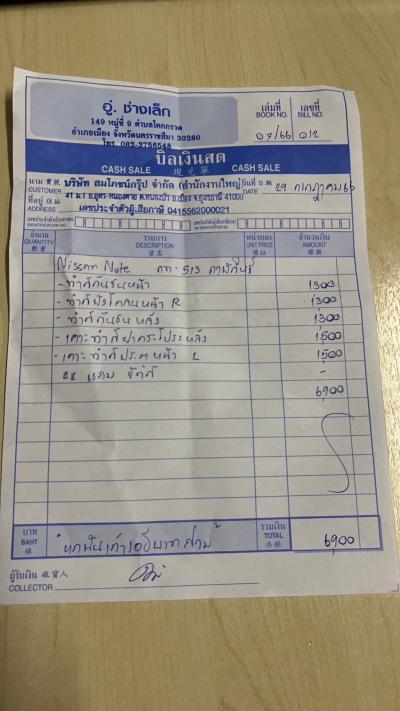 อู่. ช่างเล็ก
149 หมู่ที่ 9 ตำบลโคกกรวด
อำเภอเมือง จังหวัดนครราชสีมา 30280
โทร. 082-3756548
เล่มที่ เลขที่
BOOK NO. BILL NO.
07/66 012
บิลเงินสด
CASH SALE 現兌單 CASH SALE
นาม 寶號 บริษัท สมโภชน์กรุ๊ป จำกัด (สำนักงานใหญ่) วันที่
CUSTOMER DATE 29 กรกฎาคม 66
41 ม.1 ถ.อุดร-หนองคาย ต.หนองบัว อ.เมือง จ.อุดรธานี 41000
ที่อยู่ ADDRESS เลขประจำตัวผู้เสียภาษี 0415562000021
จำนวน รายการ หน่วยละ จำนวนเงิน
QUANTITY DESCRIPTION UNIT PRICE AMOUNT
數量 貨名
Nissan Note 513 กาฬสินธุ์
- ทำสีกันชนหน้า 1300
- ทำสีบังโคลนหน้า R 1300
- ทำสีกันชนหลัง 1300
- เคาะทำสีฝากระโปรงหลัง 1500
- เคาะทำสีประตูหน้า L 1500
-
6900
บาท รวมเงิน
BAHT TOTAL 6900
"หกพันเก้าร้อยบาทถ้วน"
ผู้รับเงิน 收貨人
COLLECTOR